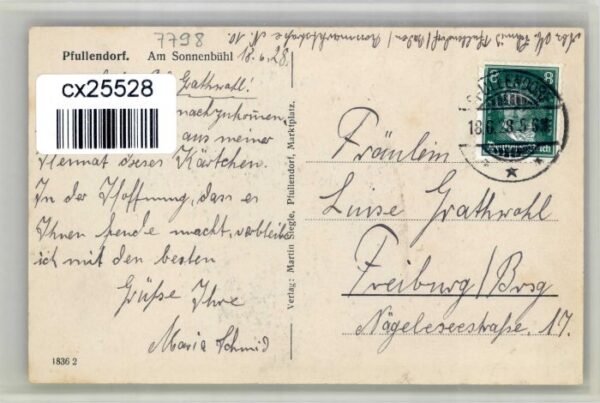 7798
Pfullendorf. Am Sonnenbühl
18.6.28.
Abs. M. Schmid Pfullendorf/Baden/
cx25528
Grathwohl!
nachzukommen,
aus meiner
Heimat dieses Kärtchen.
In der Hoffnung, dass es
Ihnen Freude macht, verbleibe
ich mit den besten
Grüße Ihre
Maria Schmid
1836 2
Verlag: Martin Siegle, Pfullendorf, Marktplatz.
8 8
PFULLENDORF
18.6.28.
Fräulein
Luise Grathwohl
Freiburg/Brsg
Nägeleseestraße 17.